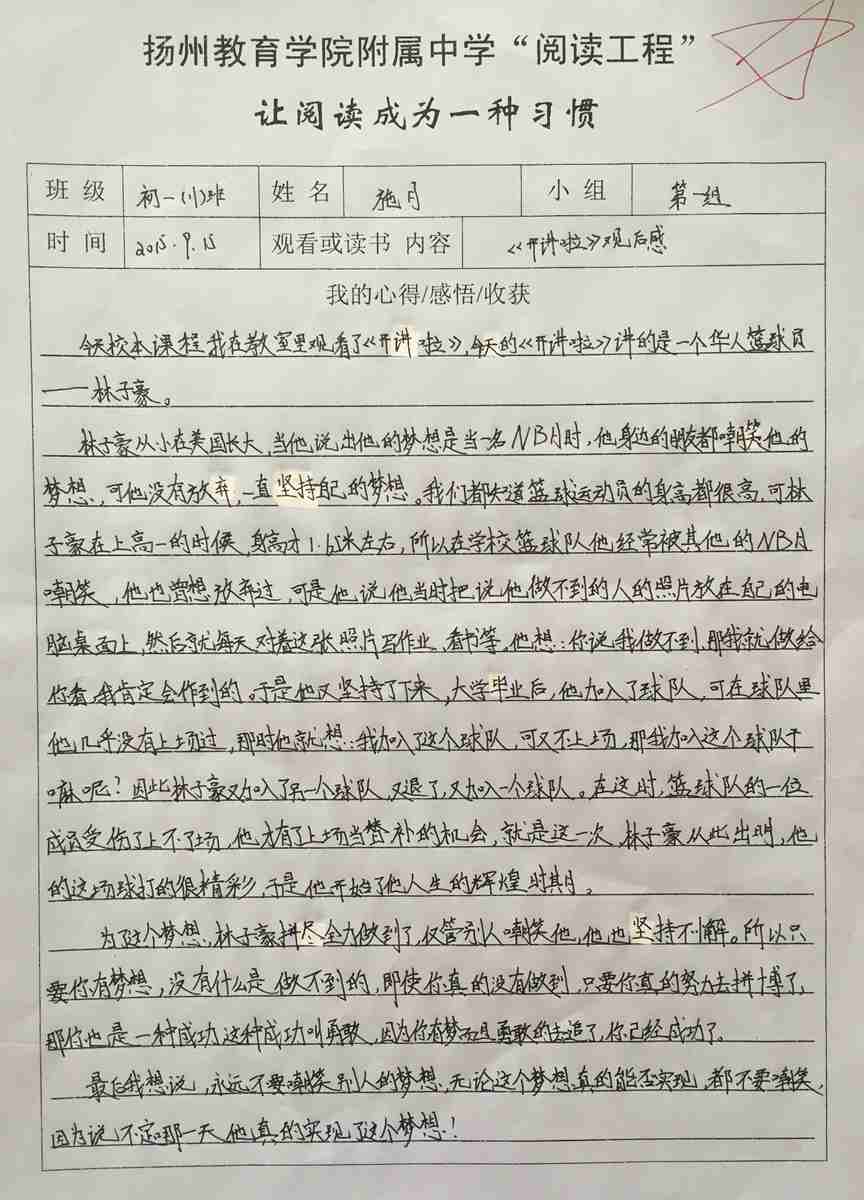 扬州教育学院附属中学“阅读工程”
让阅读成为一种习惯
班 级 初一(11)班 姓 名 施月 小 组 第一组
时 间 2015.9.15 观看或读书 内容 《开讲啦》观后感
我的心得/感悟/收获
今天校本课程,我在教室里观看了《开讲啦》,今天的《开讲啦》讲的是一个华人篮球员
——林子豪。
林子豪从小在美国长大,当他说出他的梦想是当一名NBA时,他身边的朋友都嘲笑他的
梦想,可他没有放弃,一直坚持自己的梦想。我们都知道篮球运动员的身高都很高,可林
子豪在上高一的时候,身高才1.65米左右,所以在学校篮球队他经常被其他的NBA
嘲笑,他也曾想放弃过,可是他说他当时把说他做不到的人的照片放在自己的电
脑桌面上,然后就每天对着这张照片写作业、看书等。他想:你说我做不到,那我就做给
你看,我肯定会作到的。于是他又坚持了下来,大学毕业后,他加入了球队,可在球队里
他几乎没有上场过,那时他就想:我加入了这个球队,可又不上场,那我加入这个球队干
嘛呢?因此林子豪又加入了另一个球队,又退了,又加入一个球队。在这时,篮球队的一位
成员受伤了上不了场,他才有了上场当替补的机会,就是这一次,林子豪从此出明,他
的这场球打的很精彩,于是他开始了他人生的辉煌时期。
为了这个梦想,林子豪拼尽全力做到了,仅管别人嘲笑他,他也坚持不懈。所以只
要你有梦想,没有什么是做不到的,即使你真的没有做到,只要你真的努力去拼博了,
那你也是一种成功,这种成功叫勇敢,因为你有梦而且勇敢的去追了,你已经成功了。
最后我想说,永远不要嘲笑别人的梦想,无论这个梦想真的能否实现,都不要嘲笑,
因为说不定哪一天他真的实现了这个梦想!